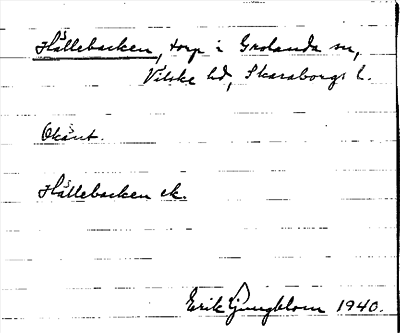 Hållebacken, torp i Grolanda sn,
Vilske hd, Skaraborgs l.
Okänt.
Hållebacken ek.
Erik Ljungblom 1940.